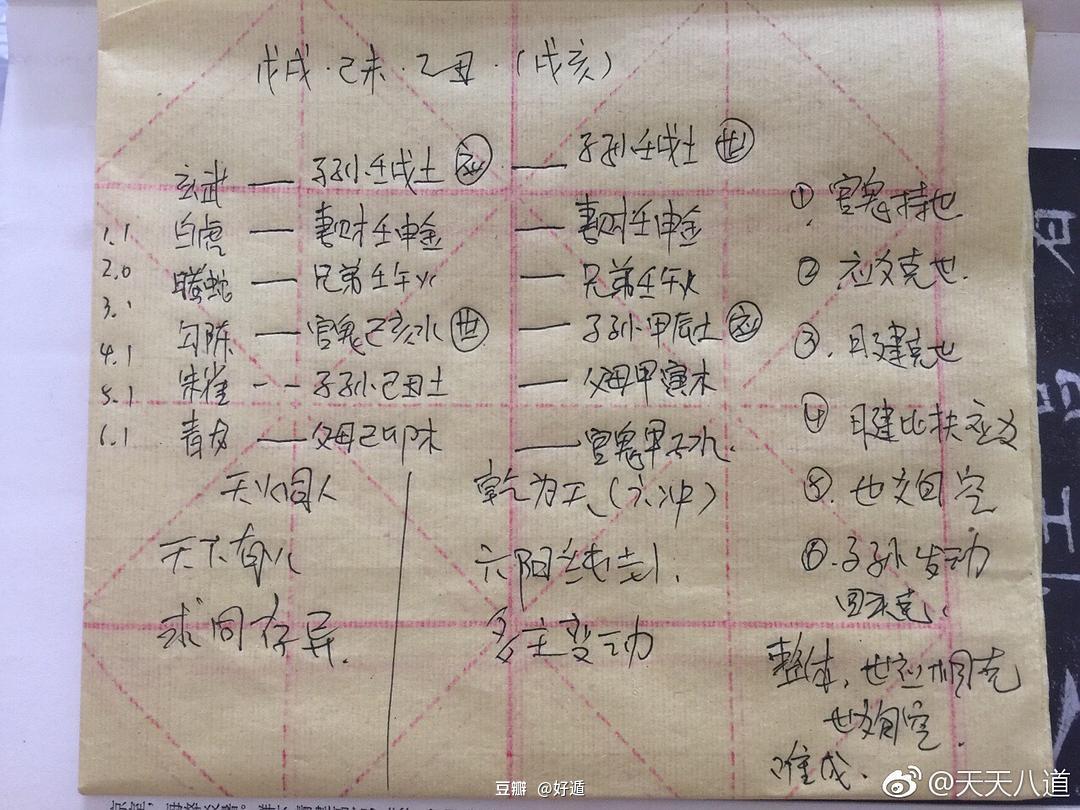 戊戌·己未·乙丑·(戌亥)
玄武 子孙壬戌土 应 子孙壬戌土 世
1.1 白虎 妻财壬申金 妻财壬申金
2.0 螣蛇 兄弟壬午火 兄弟壬午火
3.1 勾陈 官鬼己亥水 世 子孙甲辰土 应
4.1 朱雀 子孙己丑土 父母甲寅木
5.1
6.1 青龙 父母己卯木 官鬼甲子水.
天火同人 乾为天(六冲)
天下有火 六阳纯卦.
求同存异. 多主变动
① 官鬼持世
② 应爻克世.
③. 日建克世
④ 日建比扶应爻
⑤. 世爻旬空
⑥. 子孙发动
回头克.
整体,世应相克
世爻旬空.
难成.
豆瓣 @好遁
@天天八道